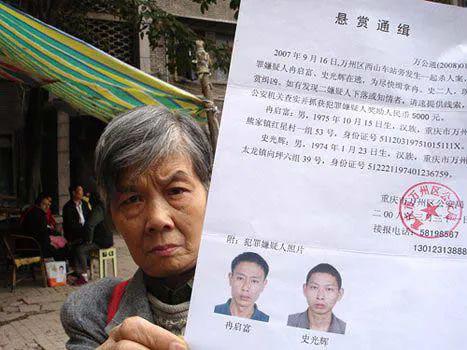 悬赏通缉
万公通(2008)0
2007 年 9 月 16 日,万州区西山车站旁发生一起杀人案,
罪嫌疑人冉启富、史光辉在逃,为尽快缉拿冉、史二人,
赏缉凶。如有发现二嫌疑人下落或知情者,请速提供线索,
公安机关查实并抓获犯罪嫌疑人奖励人民币 5000 元。
冉启富:男,1975 年 10 月 15 日生,汉族,重庆市万州
熊家镇红星村一组 53 号,身份证号 51120319751015111X。
史光辉:男,1974 年 1 月 23 日生,汉族,重庆市万州
太龙镇向坪六组 39 号,身份证号 512221197401236759。
重庆市万州区公安局
二 00 年三月三十
接报电话:58198567
13012313888
附:犯罪嫌疑人照片
冉启富
史光辉